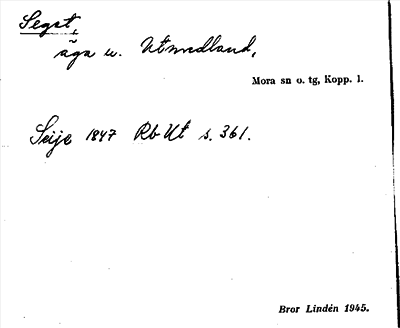 Segst,
äga u. Utmedland,
Mora sn o. tg, Kopp. l.
Seije 1847 Rb Ut s. 361.
Bror Lindén 1945.